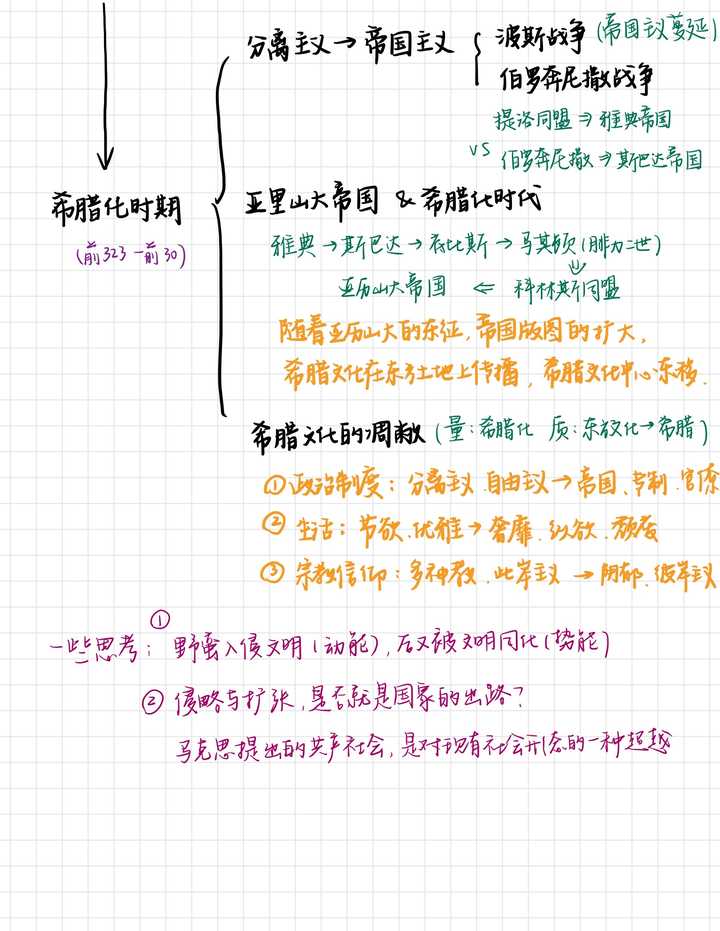 分离主义→帝国主义
波斯战争(帝国主义蔓延)
伯罗奔尼撒战争
提洛同盟⇒雅典帝国
VS 伯罗奔尼撒⇒斯巴达帝国
希腊化时期
(前323-前30)
亚里山大帝国 & 希腊化时代
雅典→斯巴达→底比斯→马其顿(腓力二世)
亚历山大帝国 ⇐ 科林斯同盟
随着亚历山大的东征,帝国版图的扩大,
希腊文化在东方土地上传播,希腊文化中心东移.
希腊文化的凋敝(量:希腊化 质:东方化→希腊)
①政治制度:分离主义.自由主义→帝国、专制.官僚
②生活:节欲.优雅→奢靡.纵欲.颓废
③宗教信仰:多神教.此岸主义→阴郁.彼岸主义
一些思考:①野蛮入侵文明(动能),后又被文明同化(势能)
②侵略与扩张,是否就是国家的出路?
马克思提出的共产社会,是对现有社会形态的一种超越